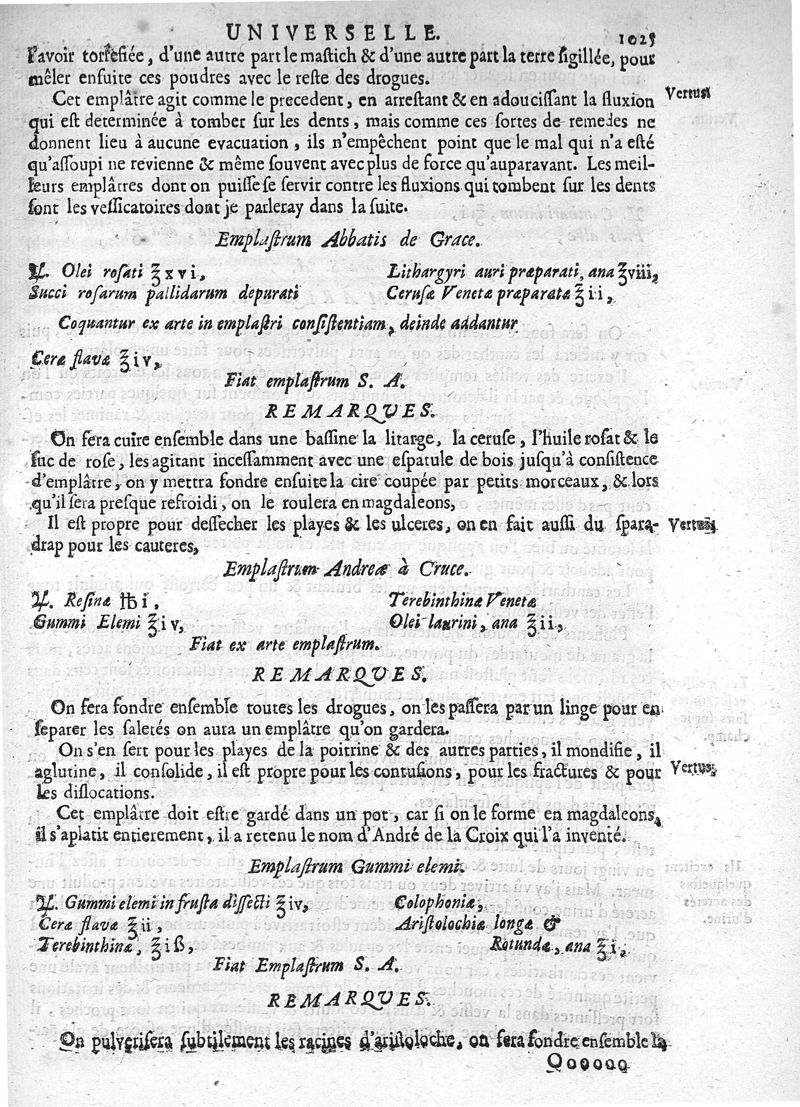 UNIVERSELLE. 1025
l'avoir torrefiée, d'une autre part le mastich & d'une autre part la terre sigillée, pour
mêler ensuite ces poudres avec le reste des drogues.
Cet emplâtre agit comme le precedent, en arrestant & en adoucissant la fluxion Vertus.
qui est determinée à tomber sur les dents, mais comme ces sortes de remedes ne
donnent lieu à aucune evacuation, ils n'empêchent point que le mal qui n'a esté
qu'assoupi ne revienne & même souvent avec plus de force qu'auparavant. Les meil-
leurs emplâtres dont on puisse se servir contre les fluxions qui tombent sur les dents
sont les vessicatoires dont je parleray dans la suite.
Emplastrum Abbatis de Grace.
℞. Olei rosati ℥xvi,
Succi rosarum pallidarum depurati
Lithargyri auri præparati, ana ℥viii,
Cerusæ Venetæ præparatæ ℥ii,
Coquantur ex arte in emplastri consistentiam, deinde addantur
Ceræ flavæ ℥iv,
Fiat emplastrum S. A.
REMARQUES.
On fera cuire ensemble dans une bassine la litarge, la ceruse, l'huile rosat & le
suc de rose, les agitant incessamment avec une espatule de bois jusqu'à consistence
d'emplâtre, on y mettra fondre ensuite la cire coupée par petits morceaux, & lors
qu'il sera presque refroidi, on le roulera en magdaleons,
Il est propre pour dessecher les playes & les ulceres, on en fait aussi du spara- Vertus.
drap pour les cauteres,
Emplastrum Andreæ à Cruce.
℞. Resinæ ℔i,
Gummi Elemi ℥iv,
Terebinthinæ Venetæ
Olei laurini, ana ℥ii,
Fiat ex arte emplastrum.
REMARQUES.
On fera fondre ensemble toutes les drogues, on les passera par un linge pour en
separer les saletés on aura un emplâtre qu'on gardera.
On s'en sert pour les playes de la poitrine & des autres parties, il mondifie, il
aglutine, il consolide, il est propre pour les contusions, pour les fractures & pour Vertus.
les dislocations.
Cet emplâtre doit estre gardé dans un pot, car si on le forme en magdaleons,
il s'aplatit entierement, il a retenu le nom d'André de la Croix qui l'a inventé.
Emplastrum Gummi elemi.
℞. Gummi elemi in frusta dissecti ℥iv,
Ceræ flavæ ℥ii,
Terebinthinæ, ℥iß,
Colophoniæ,
Aristolochiæ longæ &
Rotundæ, ana ℥i,
Fiat Emplastrum S. A.
REMARQUES.
On pulverisera subtilement les racines d'aristoloche, on fera fondre ensemble la
Qooooo